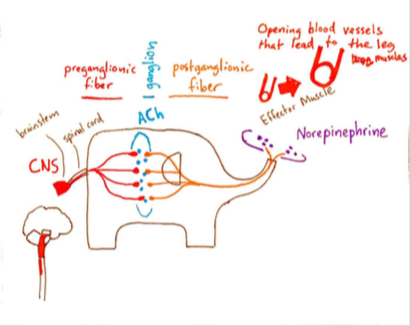 Opening blood vessels
that lead to the leg
muscles
preganglionic
fiber
1 ganglion
postganglionic
fiber
ACh
Effector Muscle
brainstem
spinal cord
Norepinephrine
CNS